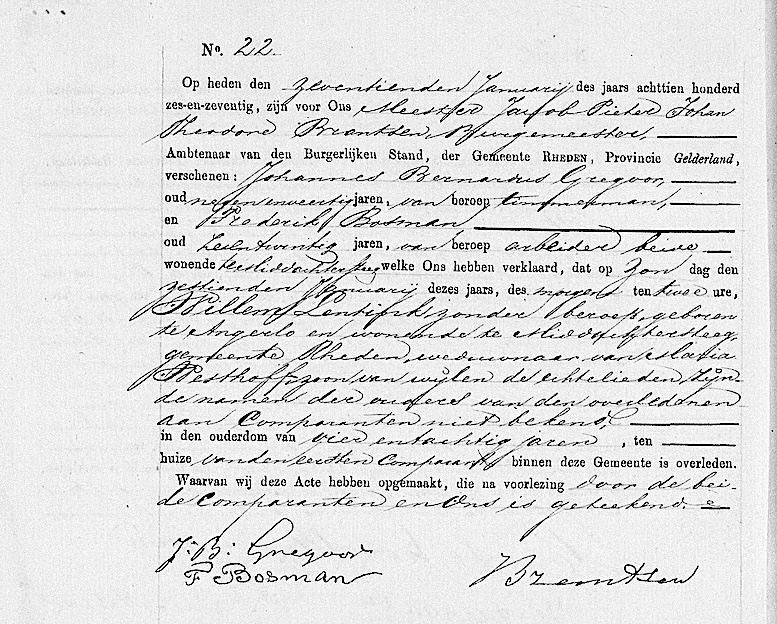 No. 22.
Op heden den zeventienden Januarij des jaars achttien honderd
zes-en-zeventig, zijn voor Ons Meester Jacob Pieter Johan
Theodore Brantsen, Burgemeester,
Ambtenaar van den Burgerlijken Stand, der Gemeente RHEDEN, Provincie Gelderland,
verschenen: Johannes Bernardus Gregoor,
oud negen en veertig jaren, van beroep timmerman,
en Frederik Bosman
oud zes en twintig jaren, van beroep arbeider beide
wonende te Middachtersteeg welke Ons hebben verklaard, dat op Zon dag den
zestienden Januarij dezes jaars, des morgens ten twee ure,
Willem Lentink, zonder beroep, geboren
te Angerlo en wonende te Middachtersteeg,
gemeente Rheden, weduwnaar van Maria
Westhoff, zoon van wijlen de echtelieden, zijn-
de namen der ouders van den overledenen
aan Comparanten niet bekend,
in den ouderdom van vier en tachtig jaren, ten
huize van den eersten Comparant binnen deze Gemeente is overleden.
Waarvan wij deze Acte hebben opgemaakt, die na voorlezing door de bei-
de Comparanten en Ons is geteekend.
J: B: Gregoor
F Bosman Brantsen